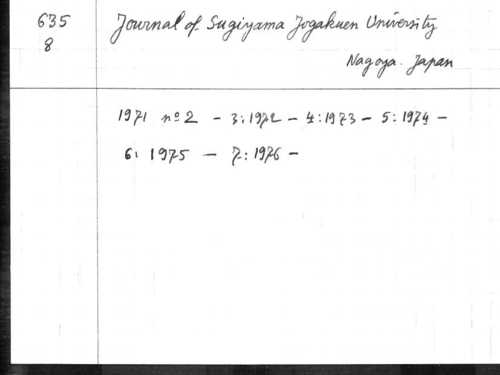 635
8
Journal of Sugiyama Jogakuen University
Nagoya. Japan
1971 nº 2 - 3:1972 - 4:1973 - 5:1974 -
6: 1975 - 7:1976 -